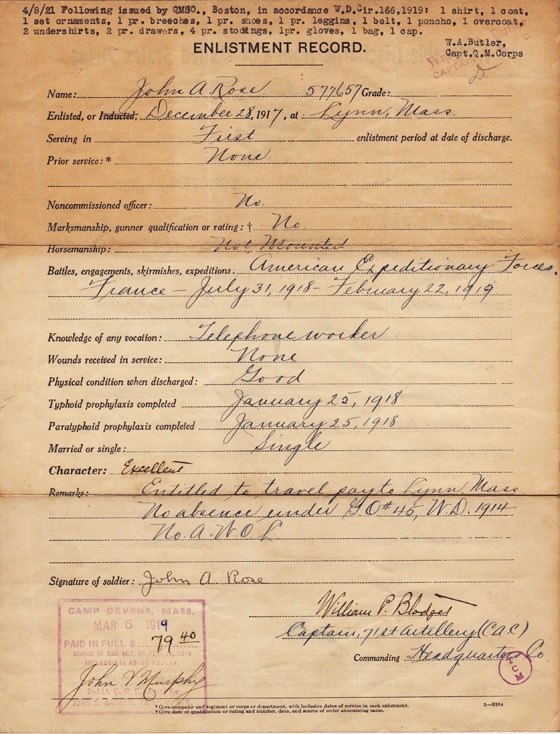 4/8/21 Following issued by QMSO., Boston, in accordance W.D.Cir.166,1919: 1 shirt, 1 coat,
1 set ornaments, 1 pr. breeches, 1 pr. shoes, 1 pr. leggins, 1 belt, 1 poncho, 1 overcoat,
2 undershirts, 2 pr. drawers, 4 pr. stockings, 1pr. gloves, 1 bag, 1 cap.
W.A.Butler,
Capt.Q.M.Corps
ENLISTMENT RECORD.
Name: John A Rose 577657 Grade:
Enlisted, or Inducted, December 28, 1917, at Lynn, Mass.
Serving in First enlistment period at date of discharge.
Prior service: * None
Noncommissioned officer: No.
Marksmanship, gunner qualification or rating: † No
Horsemanship: Not Mounted
Battles, engagements, skirmishes, expeditions: American Expeditionary Forces.
France – July 31, 1918 – February 22, 1919
Knowledge of any vocation: Telephone worker
Wounds received in service: None
Physical condition when discharged: Good
Typhoid prophylaxis completed January 25, 1918
Paratyphoid prophylaxis completed January 25, 1918
Married or single: Single
Character: Excellent
Remarks: Entitled to travel pay to Lynn Mass
No absence under G.O #45, W.D. 1914
No. A.W.O.L
Signature of soldier: John A. Rose
William P. Blodget
Captain, 71st Artillery (C A C)
Commanding Headquarters Co
CAMP DEVENS, MASS.
MAR 6 1919
PAID IN FULL $ 79 40
John V Murphy
2nd Lt. Q. M. C.
* Give company and regiment or corps or department, with inclusive dates of service in each enlistment.
† Give date of qualification or rating and number, date, and source of order announcing same.
3—3164